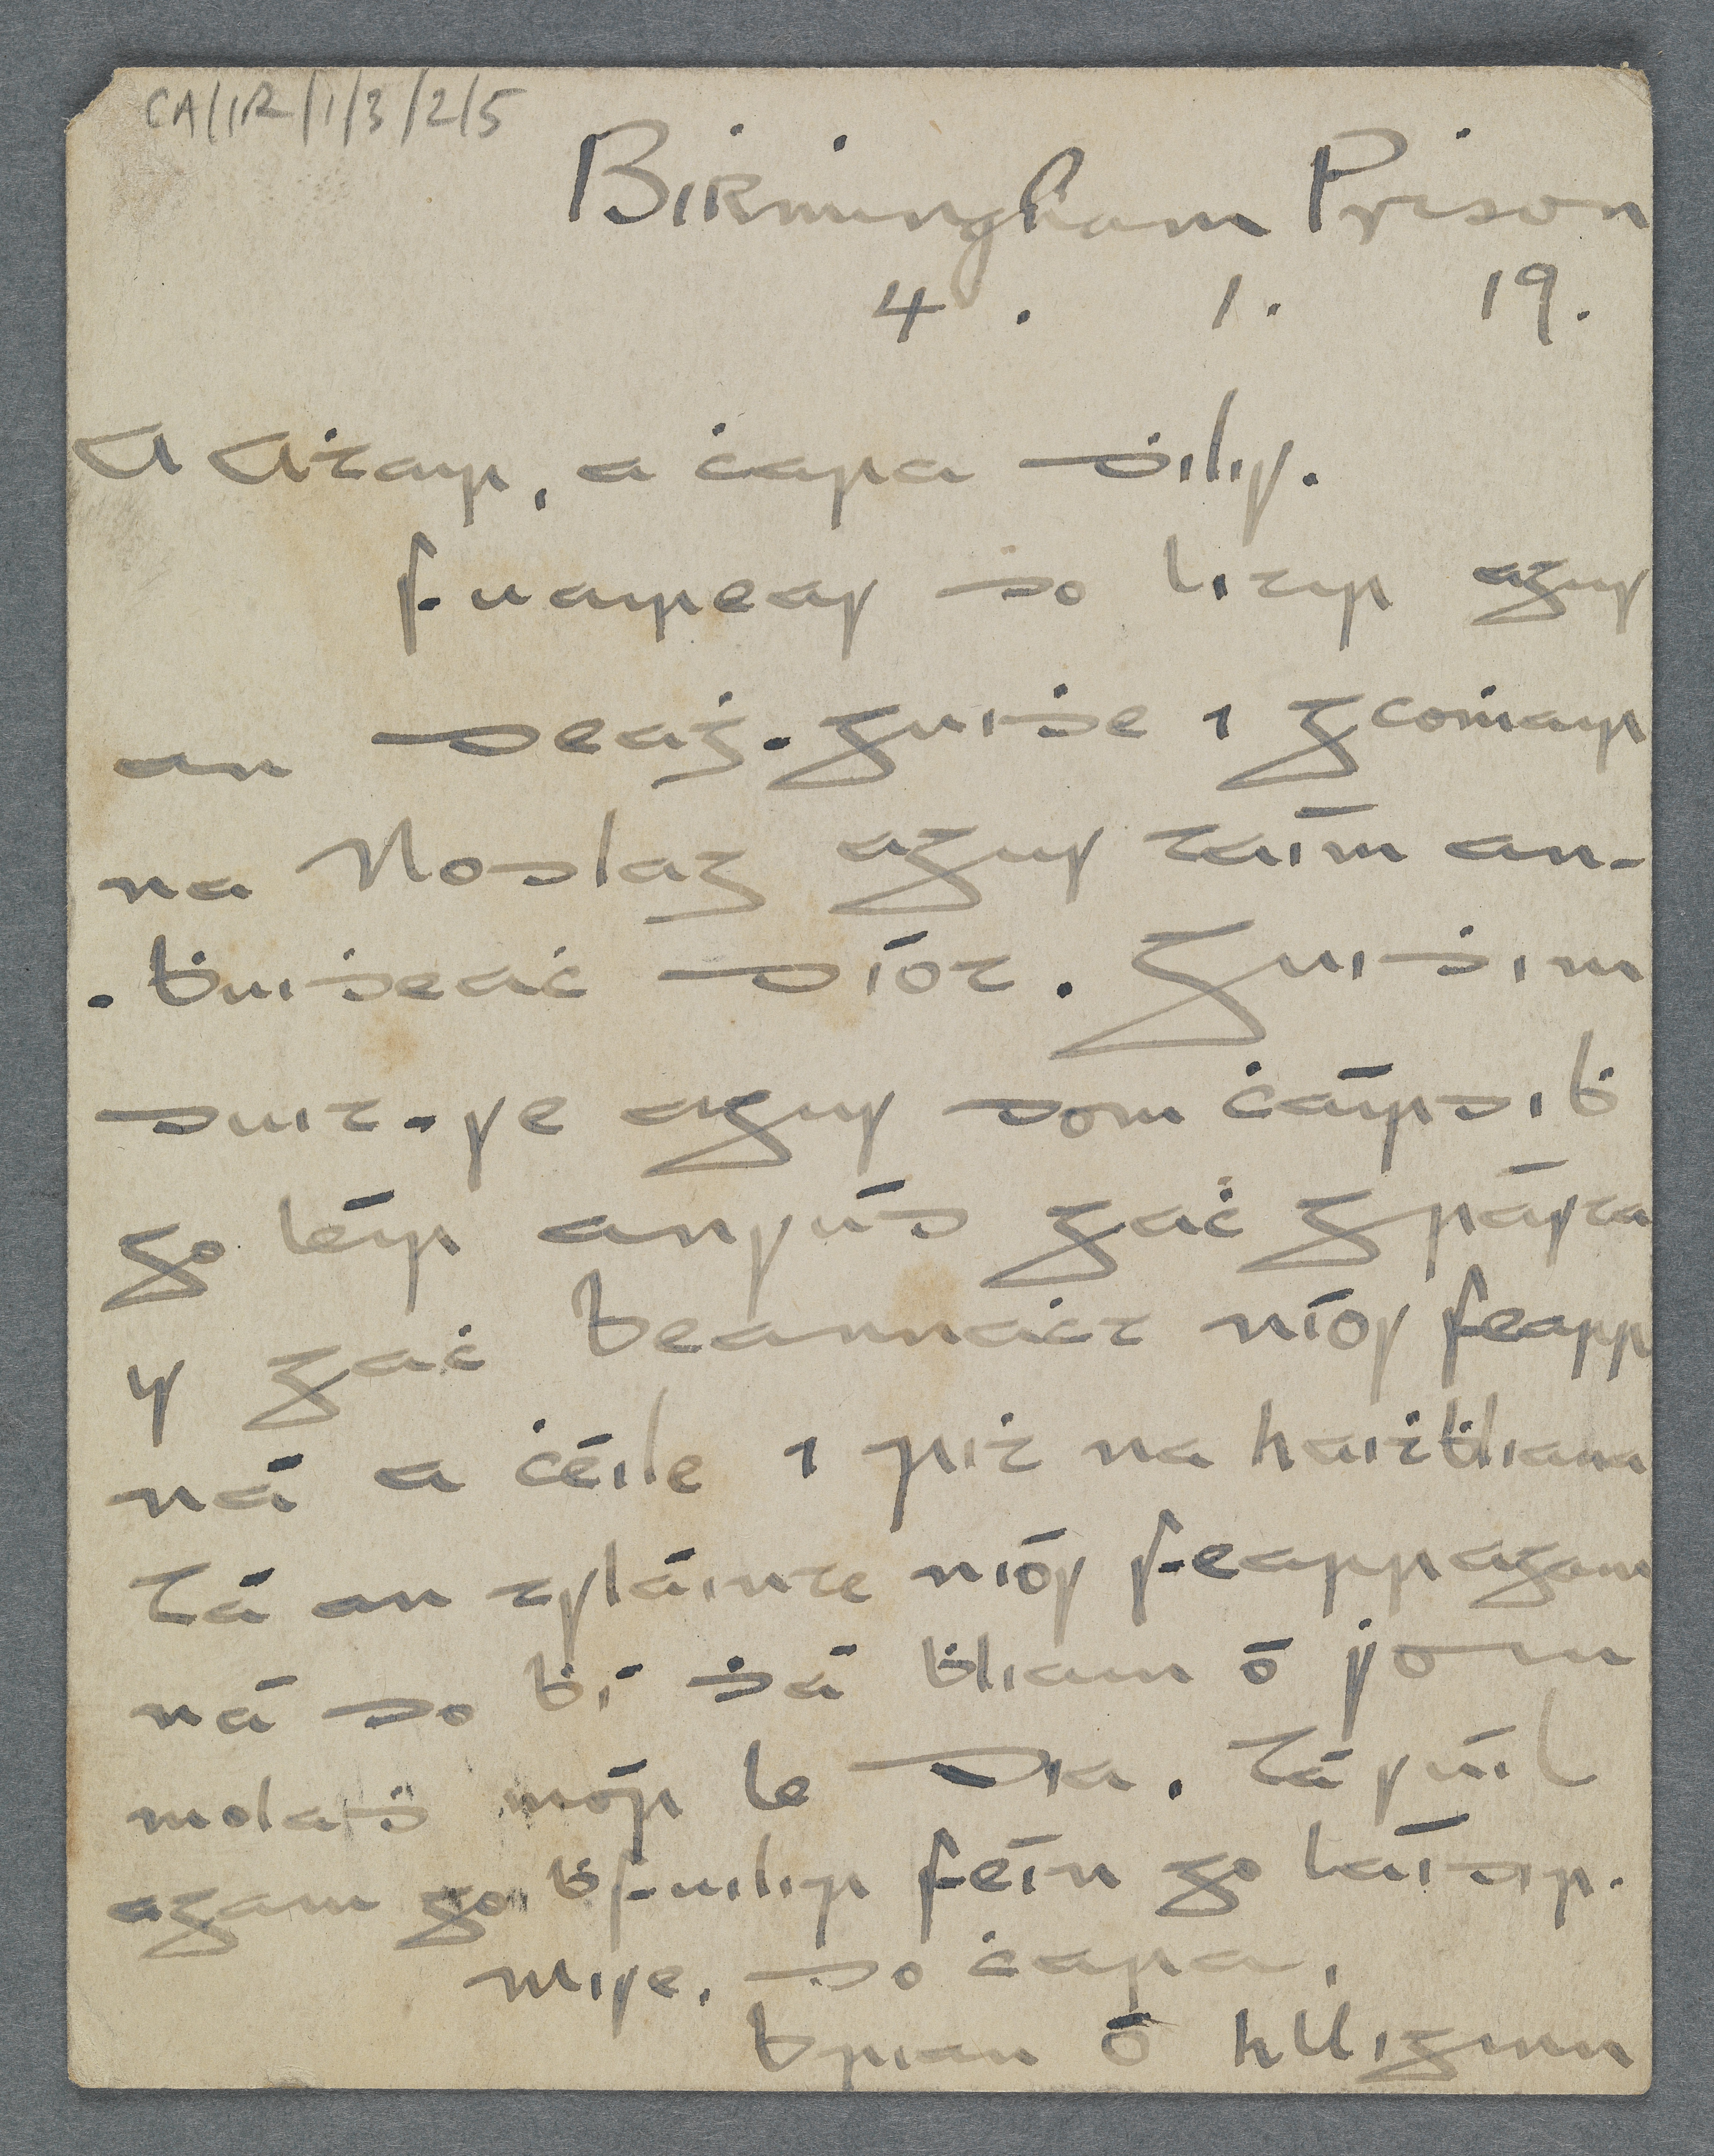 CA/IR/1/3/2/5
Birmingham Prison
4. 1. 19.
A Aṫair, a ċara ḋilis.
Fuaireas do litir agus
an deaġ-guiḋe i gcoṁair
na Nodlag agus táim an-
-ḃuiḋeaċ díot. Guiḋim
duit-se agus dom ċáirdiḃ
go léir ansúd gaċ grásta
is gaċ beannaċt níos fearr
ná a ċéile i riṫ na haiṫḃliana
Tá an tsláinte níos fearr agam
ná do ḃí ḋá ḃliain ó ṡoin
molaḋ mór le Dia. Tá súil
agam go ḃfuilir féin go láidir.
Mise, do ċara,
Brian Ó hUiginn